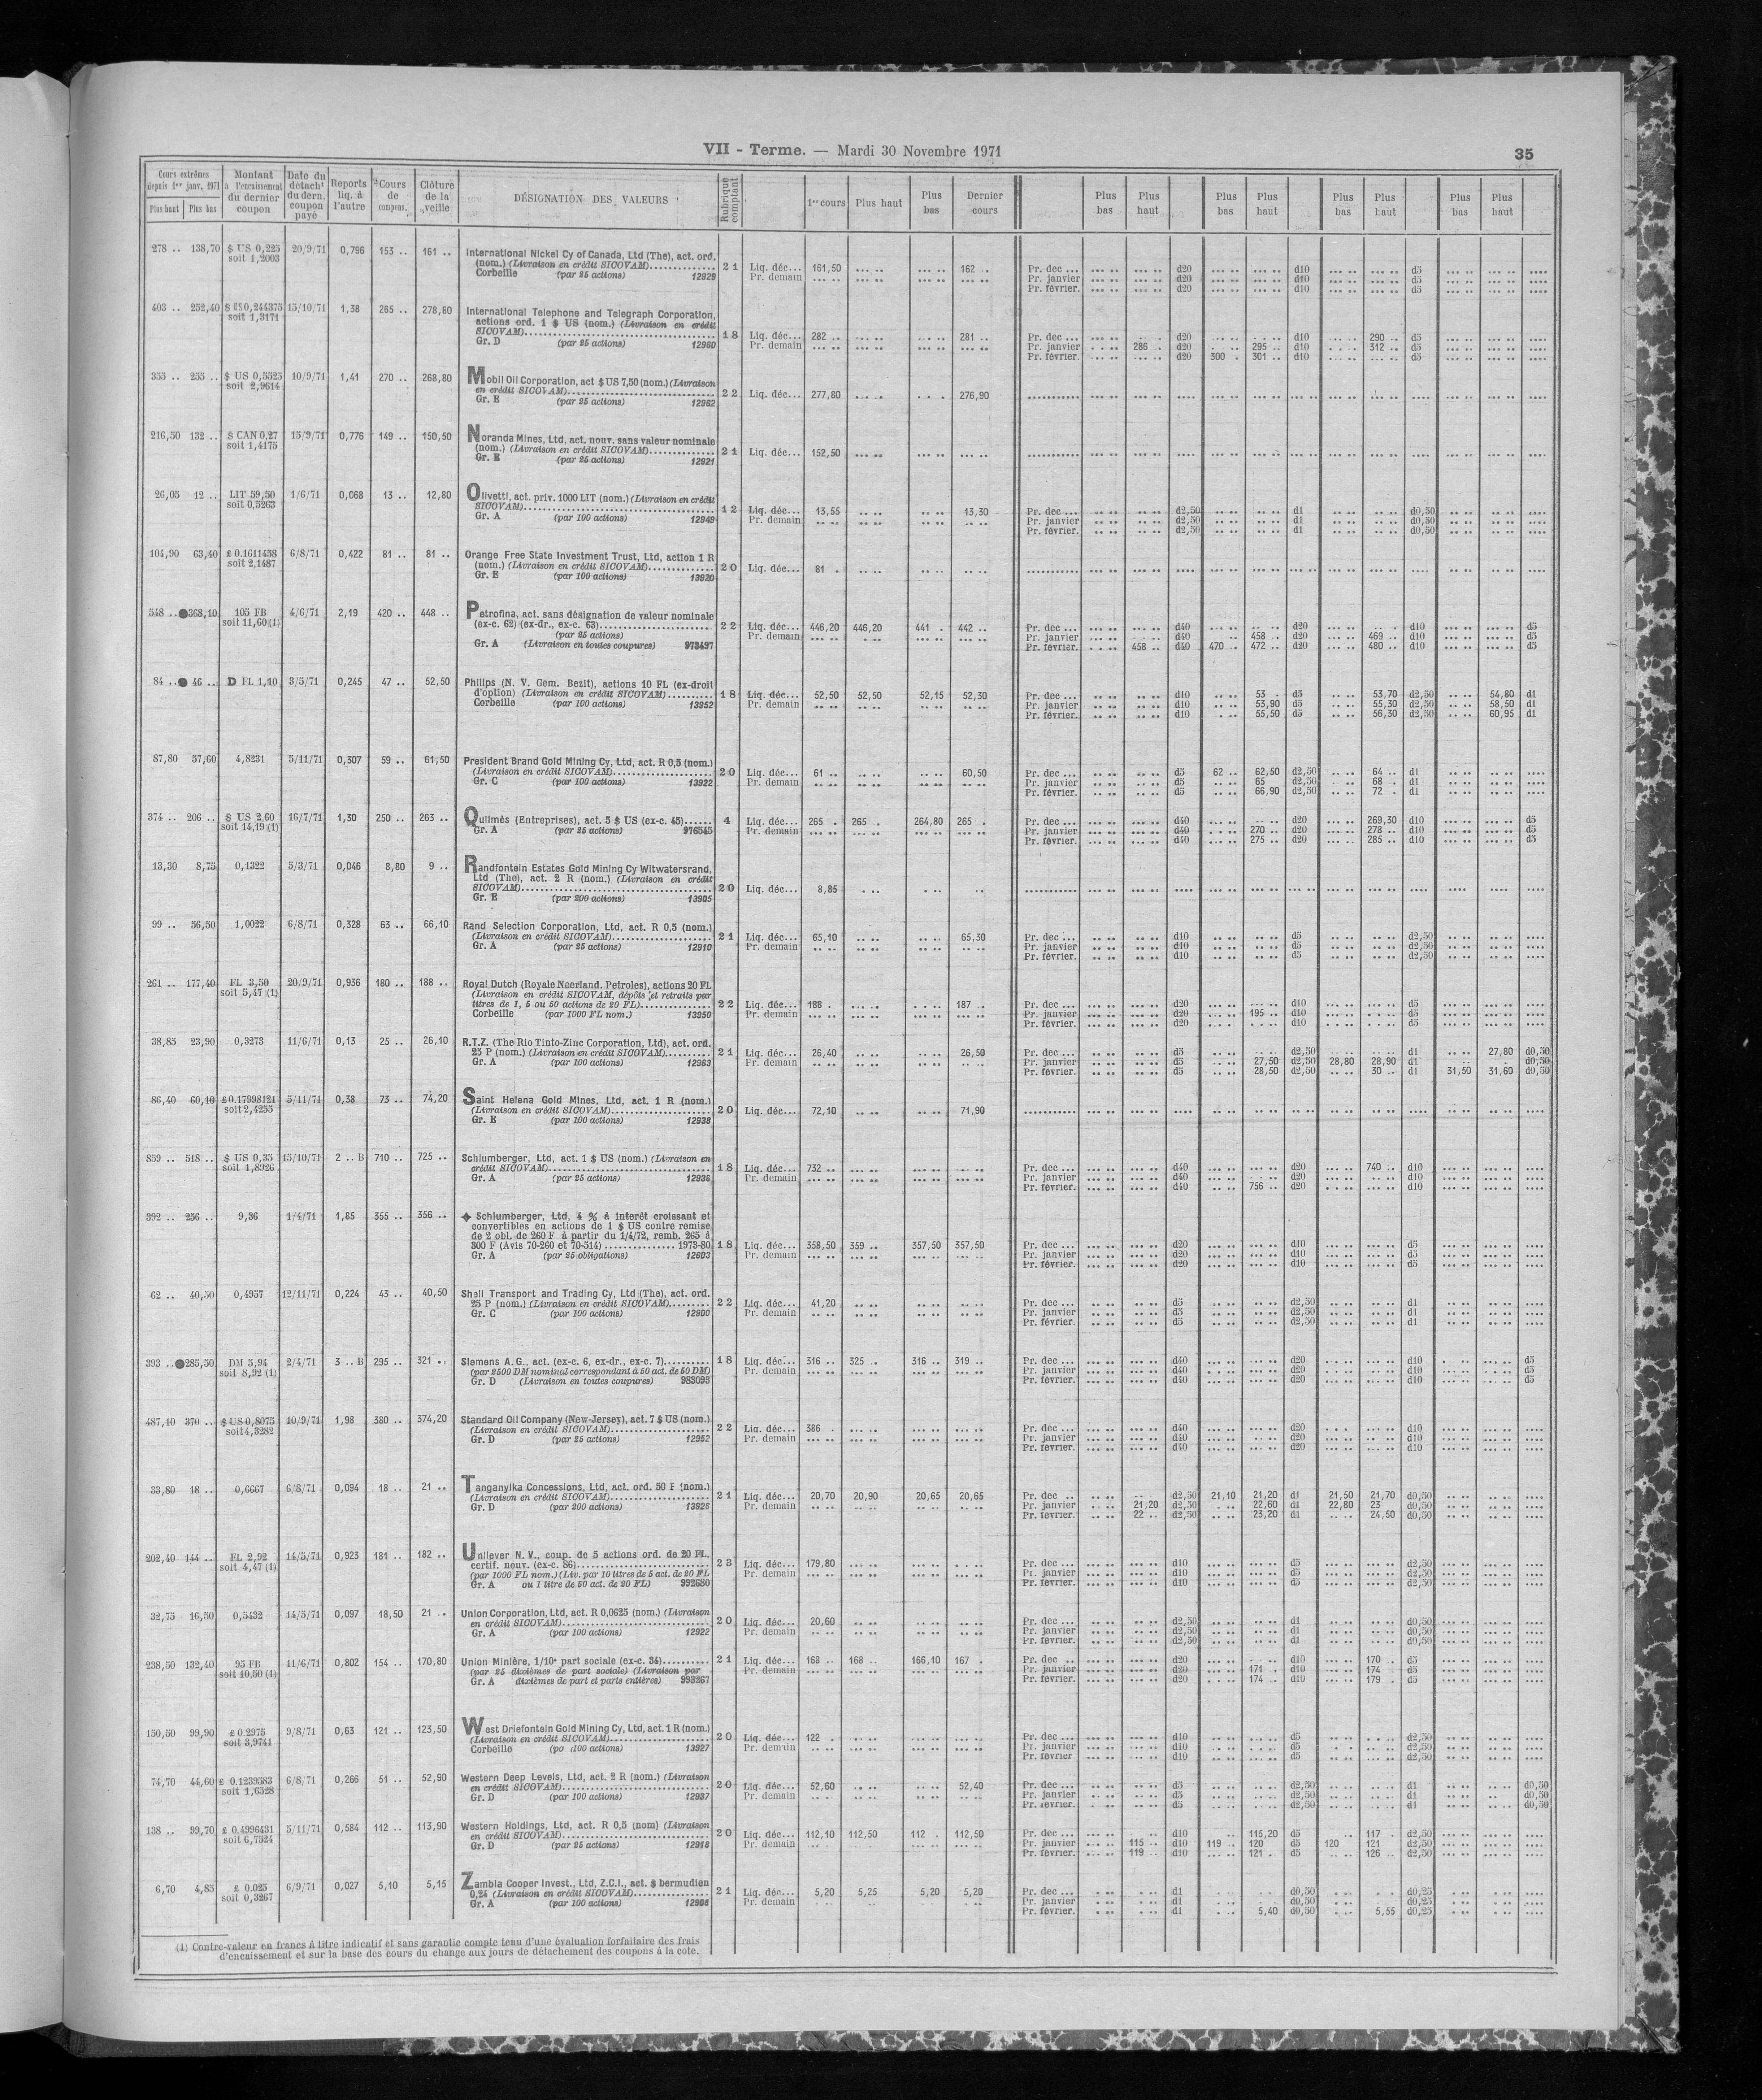 VII - Terme. — Mardi 30 Novembre 1971
35
Cours extrêmes depuis 1er janv. 1971 Plus haut Plus bas | Montant à l'encaissement du dernier coupon | Date du détacht du dern. coupon payé | Reports liq. à l'autre | Cours de compens. | Clôture de la veille | DÉSIGNATION DES VALEURS | Rubrique comptant | 1er cours | Plus haut | Plus bas | Dernier cours | Plus bas | Plus haut | Plus bas | Plus haut | Plus bas | Plus haut | Plus bas | Plus haut
278 .. 138,70 $ US 0,225 20/9/71 0,796 153 .. 161 .. International Nickel Cy of Canada, Ltd (The), act. ord.
soit 1,2003 (nom.) (Livraison en crédit SICOVAM) 21 Liq. déc... 161,50 162 .. Pr. dec ... d20 d10 d5
Corbeille (par 25 actions) 12929 Pr. demain Pr. janvier d20 d10 d5
Pr. février. d20 d10 d5
403 .. 252,40 $ US 0,244375 15/10/71 1,38 265 .. 278,80 International Telephone and Telegraph Corporation,
soit 1,3171 actions ord. 1 $ US (nom.) (Livraison en crédit
SICOVAM) 18 Liq. déc... 282 .. 281 .. Pr. dec ... d20 d10 290 .. d5
Gr. D (par 25 actions) 12960 Pr. demain Pr. janvier 286 .. d20 295 .. d10 312 .. d5
Pr. février. d20 300 . 301 .. d10 d5
355 .. 255 .. $ US 0,5525 10/9/71 1,41 270 .. 268,80 Mobil Oil Corporation, act $ US 7,50 (nom.) (Livraison
soit 2,9614 en crédit SICOVAM) 22 Liq. déc... 277,80 276,90
Gr. E (par 25 actions) 12962
216,50 132 .. $ CAN 0,27 15/9/71 0,776 149 .. 150,50 Noranda Mines, Ltd, act. nouv. sans valeur nominale
soit 1,4175 (nom.) (Livraison en crédit SICOVAM) 21 Liq. déc... 152,50
Gr. E (par 25 actions) 12921
26,05 12 .. LIT 59,50 1/6/71 0,068 13 .. 12,80 Olivetti, act. priv. 1000 LIT (nom.) (Livraison en crédit
soit 0,5263 SICOVAM) 12 Liq. déc... 13,55 13,30 Pr. dec ... d2,50 d1 d0,50
Gr. A (par 100 actions) 12949 Pr. demain Pr. janvier d2,50 d1 d0,50
Pr. février. d2,50 d1 d0,50
104,90 63,40 £ 0.1611458 6/8/71 0,422 81 .. 81 .. Orange Free State Investment Trust, Ltd, action 1 R
soit 2,1487 (nom.) (Livraison en crédit SICOVAM) 20 Liq. déc... 81 .
Gr. E (par 100 actions) 13920
548 .. ●368,10 105 FB 4/6/71 2,19 420 .. 448 .. Petrofina, act. sans désignation de valeur nominale
soit 11,60 (1) (ex-c. 62) (ex-dr., ex-c. 63) 22 Liq. déc... 446,20 446,20 441 . 442 .. Pr. dec ... d40 d20 d10 d5
(par 25 actions) Pr. demain Pr. janvier d40 458 .. d20 469 .. d10 d5
Gr. A (Livraison en toutes coupures) 973497 Pr. février. 458 .. d40 470 .. 472 .. d20 480 .. d10 d5
84 .. ● 46 .. D FL 1,10 3/5/71 0,245 47 .. 52,50 Philips (N. V. Gem. Bezit), actions 10 FL (ex-droit
d'option) (Livraison en crédit SICOVAM) 18 Liq. déc... 52,50 52,50 52,15 52,30 Pr. dec ... d10 53 . d5 53,70 d2,50 54,80 d1
Corbeille (par 100 actions) 13952 Pr. demain Pr. janvier d10 53,90 d5 55,30 d2,50 58,50 d1
Pr. février. d10 55,50 d5 56,30 d2,50 60,95 d1
87,80 57,60 4,8231 5/11/71 0,307 59 .. 61,50 President Brand Gold Mining Cy, Ltd, act. R 0,5 (nom.)
(Livraison en crédit SICOVAM) 20 Liq. déc... 61 .. 60,50 Pr. dec ... d5 62 .. 62,50 d2,50 64 .. d1
Gr. C (par 100 actions) 13922 Pr. demain Pr. janvier d5 65 d2,50 68 . d1
Pr. février. d5 66,90 d2,50 72 . d1
374 .. 206 .. $ US 2,60 16/7/71 1,30 250 .. 263 .. Quilmès (Entreprises), act. 5 $ US (ex-c. 45) 4 Liq. déc... 265 . 265 . 264,80 265 . Pr. dec ... d40 d20 269,30 d10 d5
soit 14,19 (1) Gr. A (par 25 actions) 976545 Pr. demain Pr. janvier d40 270 .. d20 278 .. d10 d5
Pr. février. d40 275 .. d20 285 .. d10 d5
13,30 8,75 0,1322 5/3/71 0,046 8,80 9 .. Randfontein Estates Gold Mining Cy Witwatersrand,
Ltd (The), act. 2 R (nom.) (Livraison en crédit
SICOVAM) 20 Liq. déc... 8,85
Gr. E (par 200 actions) 13905
99 .. 56,50 1,0022 6/8/71 0,328 63 .. 66,10 Rand Selection Corporation, Ltd, act. R 0,5 (nom.)
(Livraison en crédit SICOVAM) 21 Liq. déc... 65,10 65,30 Pr. dec ... d10 d5 d2,50
Gr. A (par 25 actions) 12910 Pr. demain Pr. janvier d10 d5 d2,50
Pr. février. d10 d5 d2,50
261 .. 177,40 FL 3,50 20/9/71 0,936 180 .. 188 .. Royal Dutch (Royale Neerland. Petroles), actions 20 FL
soit 5,47 (1) (Livraison en crédit SICOVAM, dépôts et retraits par
titres de 1, 5 ou 50 actions de 20 FL) 22 Liq. déc... 188 . 187 .. Pr. dec ... d20 d10 d5
Corbeille (par 1000 FL nom.) 13950 Pr. demain Pr. janvier d20 195 .. d10 d5
Pr. février. d20 d10 d5
38,85 23,90 0,3273 11/6/71 0,13 25 .. 26,10 R.T.Z. (The Rio Tinto-Zinc Corporation, Ltd), act. ord.
25 P (nom.) (Livraison en crédit SICOVAM) 21 Liq. déc... 26,40 26,50 Pr. dec ... d5 d2,50 d1 27,80 d0,50
Gr. A (par 100 actions) 12963 Pr. demain Pr. janvier d5 27,50 d2,50 28,80 28,90 d1 d0,50
Pr. février. d5 28,50 d2,50 30 .. d1 31,50 31,60 d0,50
86,40 60,10 £ 0.17998121 5/11/71 0,38 73 .. 74,20 Saint Helena Gold Mines, Ltd, act. 1 R (nom.)
soit 2,4255 (Livraison en crédit SICOVAM) 20 Liq. déc... 72,10 71,90
Gr. E (par 100 actions) 12938
859 .. 518 .. $ US 0,35 15/10/71 2 .. B 710 .. 725 .. Schlumberger, Ltd, act. 1 $ US (nom.) (Livraison en
soit 1,8926 crédit SICOVAM) 18 Liq. déc... 732 .. Pr. dec ... d40 d20 740 .. d10
Gr. A (par 25 actions) 12936 Pr. demain Pr. janvier d40 d20 d10
Pr. février. d40 756 .. d20 d10
392 .. 256 .. 9,36 1/4/71 1,85 355 .. 356 .. ✦ Schlumberger, Ltd, 4 % à interêt croissant et
convertibles en actions de 1 $ US contre remise
de 2 obl. de 260 F à partir du 1/4/72, remb. 265 à
300 F (Avis 70-260 et 70-514) 1973-80 18 Liq. déc... 358,50 359 .. 357,50 357,50 Pr. dec ... d20 d10 d5
Gr. A (par 25 obligations) 12603 Pr. demain Pr. janvier d20 d10 d5
Pr. février. d20 d10 d5
62 .. 40,50 0,4957 12/11/71 0,224 43 .. 40,50 Shell Transport and Trading Cy, Ltd (The), act. ord.
25 P (nom.) (Livraison en crédit SICOVAM) 22 Liq. déc... 41,20 Pr. dec ... d5 d2,50 d1
Gr. C (par 100 actions) 12900 Pr. demain Pr. janvier d5 d2,50 d1
Pr. février. d5 d2,50 d1
393 .. ●285,50 DM 5,94 2/4/71 3 .. B 295 .. 321 .. Siemens A. G., act. (ex-c. 6, ex-dr., ex-c. 7) 18 Liq. déc... 316 .. 325 .. 316 .. 319 .. Pr. dec ... d40 d20 d10 d5
soit 8,92 (1) (par 2500 DM nominal correspondant à 50 act. de 50 DM) Pr. demain Pr. janvier d40 d20 d10 d5
Gr. D (Livraison en toutes coupures) 983093 Pr. février. d40 d20 d10 d5
487,10 370 .. $ US 0,8075 10/9/71 1,98 380 .. 374,20 Standard Oil Company (New-Jersey), act. 7 $ US (nom.)
soit 4,3282 (Livraison en crédit SICOVAM) 22 Liq. déc... 386 . Pr. dec ... d40 d20 d10
Gr. D (par 25 actions) 12952 Pr. demain Pr. janvier d40 d20 d10
Pr. février. d40 d20 d10
33,80 18 .. 0,6667 6/8/71 0,094 18 .. 21 .. Tanganyika Concessions, Ltd, act. ord. 50 F (nom.)
(Livraison en crédit SICOVAM) 21 Liq. déc... 20,70 20,90 20,65 20,65 Pr. dec .. d2,50 21,10 21,20 d1 21,50 21,70 d0,50
Gr. D (par 200 actions) 13926 Pr. demain Pr. janvier 21,20 d2,50 22,60 d1 22,80 23 d0,50
Pr. février. 22 .. d2,50 23,20 d1 24,50 d0,50
202,40 144 .. FL 2,92 14/5/71 0,923 181 .. 182 .. Unilever N. V., coup. de 5 actions ord. de 20 FL,
soit 4,47 (1) certif. nouv. (ex-c. 86) 23 Liq. déc... 179,80 Pr. dec ... d10 d5 d2,50
(par 1000 FL nom.) (Liv. par 10 titres de 5 act. de 20 FL Pr. demain Pr. janvier d10 d5 d2,50
Gr. A ou 1 titre de 50 act. de 20 FL) 992680 Pr. février. d10 d5 d2,50
32,75 16,50 0,5432 14/5/71 0,097 18,50 21 .. Union Corporation, Ltd, act. R 0,0625 (nom.) (Livraison
en crédit SICOVAM) 20 Liq. déc... 20,60 Pr. dec ... d2,50 d1 d0,50
Gr. A (par 100 actions) 12922 Pr. demain Pr. janvier d2,50 d1 d0,50
Pr. février. d2,50 d1 d0,50
238,50 132,40 95 FB 11/6/71 0,802 154 .. 170,80 Union Minière, 1/10e part sociale (ex-c. 34) 21 Liq. déc... 168 .. 168 .. 166,10 167 . Pr. dec .. d20 d10 170 .. d5
soit 10,50 (1) (par 25 dixièmes de part sociale) (Livraison par Pr. demain Pr. janvier d20 171 . d10 174 d5
Gr. A dixièmes de part et parts entières) 993267 Pr. février. d20 174 .. d10 179 . d5
150,50 99,90 £ 0.2975 9/8/71 0,63 121 .. 123,50 West Driefontein Gold Mining Cy, Ltd, act. 1 R (nom.)
soit 3,9741 (Livraison en crédit SICOVAM) 20 Liq. déc... 122 . Pr. dec ... d10 d5 d2,50
Corbeille (100 actions) 13927 Pr. demain Pr. janvier d10 d5 d2,50
Pr. février d10 d5 d2,50
74,70 44,60 £ 0.1239583 6/8/71 0,266 51 .. 52,90 Western Deep Levels, Ltd, act. 2 R (nom.) (Livraison
soit 1,6528 en crédit SICOVAM) 20 Liq. déc... 52,60 52,40 Pr. dec ... d5 d2,50 d1 d0,50
Gr. D (par 100 actions) 12937 Pr. demain Pr. janvier d5 d2,50 d1 d0,50
Pr. février. d5 d2,50 d1 d0,50
138 .. 99,70 £ 0.4996431 5/11/71 0,584 112 .. 113,90 Western Holdings, Ltd, act. R 0,5 (nom) (Livraison
soit 6,7524 en crédit SICOVAM) 20 Liq. déc... 112,10 112,50 112 . 112,50 Pr. dec ... d10 115,20 d5 117 . d2,50
Gr. D (par 25 actions) 12918 Pr. demain Pr. janvier 115 .. d10 119 .. 120 d5 120 121 d2,50
Pr. février. 119 .. d10 121 . d5 126 .. d2,50
6,70 4,85 £ 0.025 6/9/71 0,027 5,10 5,15 Zambia Cooper Invest., Ltd, Z.C.I., act. $ bermudien
soit 0,3267 0,24 (Livraison en crédit SICOVAM) 21 Liq. déc... 5,20 5,25 5,20 5,20 Pr. dec ... d1 d0,50 d0,25
Gr. A (par 100 actions) 12908 Pr. demain Pr. janvier d1 d0,50 d0,25
Pr. février. d1 5,40 d0,50 5,55 d0,25
(1) Contre-valeur en francs à titre indicatif et sans garantie compte tenu d'une évaluation forfaitaire des frais
d'encaissement et sur la base des cours du change aux jours de détachement des coupons à la cote.